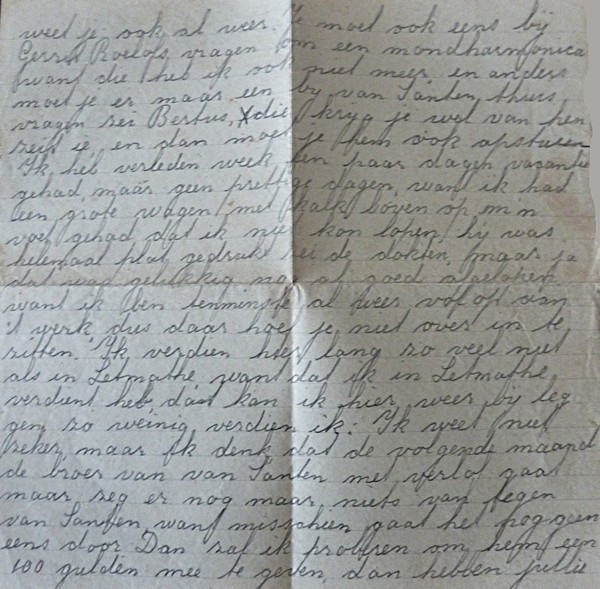 weet je ook al weer. Je moet ook eens bij
Gerrit Roelofs vragen om een mondharmonica
want die heb ik ook niet meer en anders
moet je er maar een bij van Santen thuis
vragen zei Bertus, X die krijg je wel van hen
zeit ie, en dan moet je hem ook opsturen
Ik heb verleden week een paar dagen vacantie
gehad, maar geen prettige dagen, want ik had
een grote wagen met kalk boven op m'n
voet gehad dat ik niet kon lopen, hij was
helemaal plat gedrukt zei de dokter, maar ja
dat was gelukkig nog al goed afgelopen
want ik ben tenminste al weer vol op aan
't werk dus daar hoef je niet over in te
zitten. Ik verdien hier lang zo veel niet
als in Letmathe, want dat ik in Letmathe
verdient heb, dat kan ik hier weer bij leg
gen zo weinig verdien ik. Ik weet niet
zeker, maar ik denk dat de volgende maand
de broer van van Santen met verlof gaat
maar zeg er nog maar niets van tegen
van Santen, want misschien gaat het nog geen
eens door. Dan zal ik probren om hem een
100 gulden mee te geven, dan hebben jullie